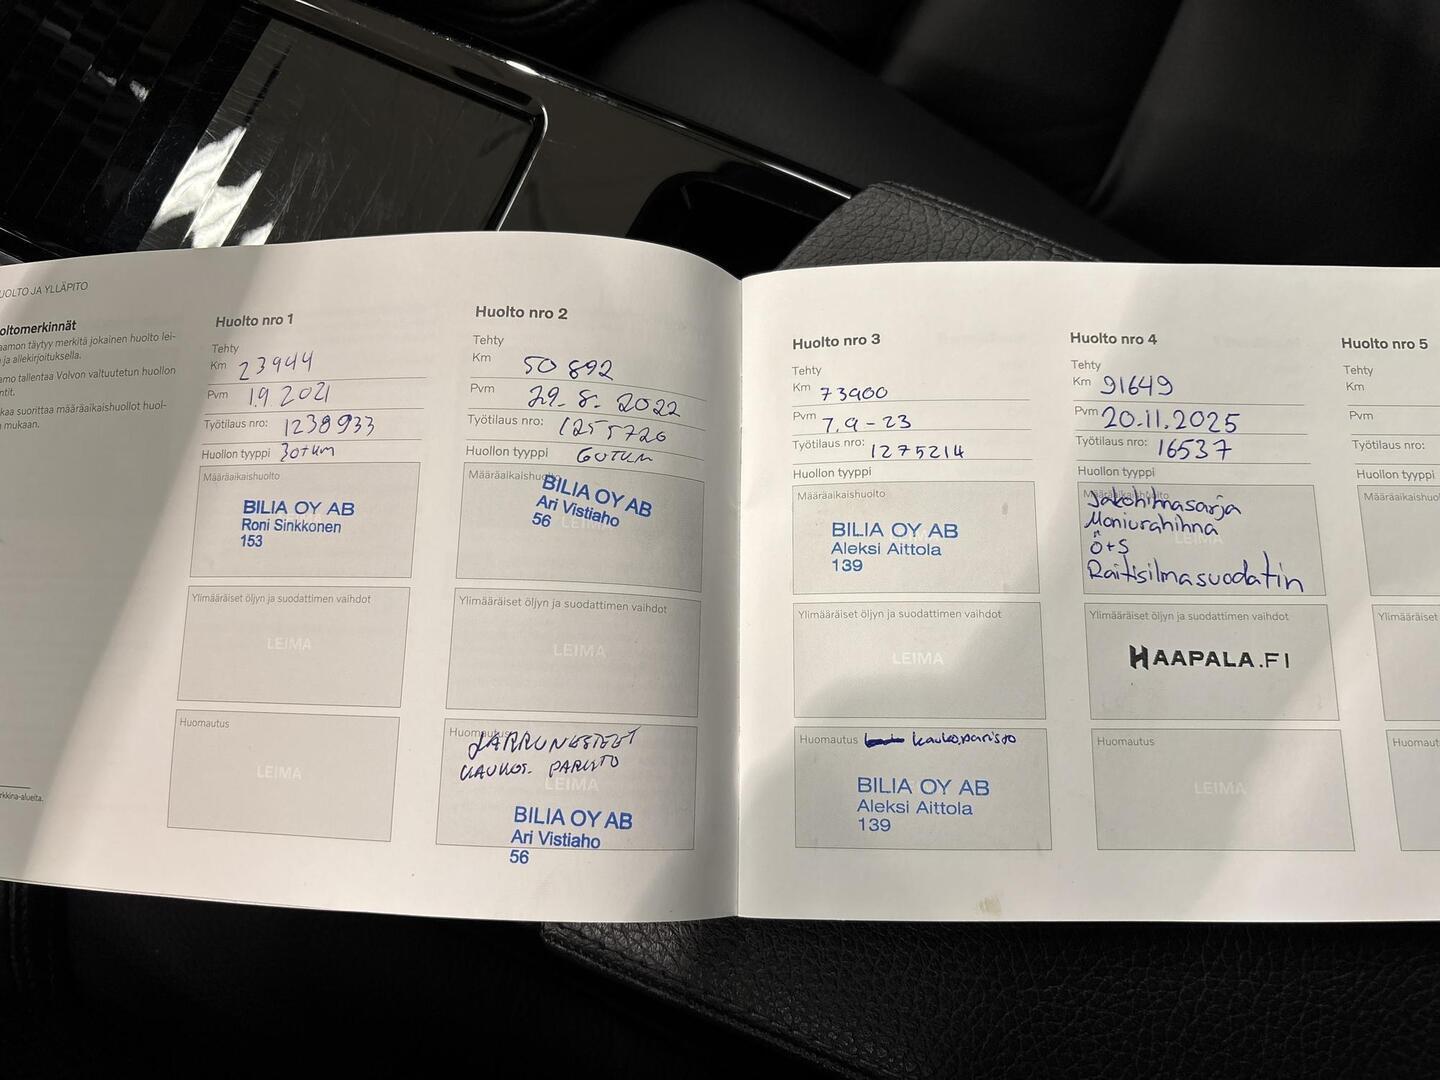 UOLTO JA YLLÄPITO
oltomerkinnät
aamon täytyy merkitä jokainen huolto lei-
n ja allekirjoituksella.
amo tallentaa Volvon valtuutetun huollon
ntit.
kaa suorittaa määräaikaishuollot huol-
n mukaan.
rkkina-alueita.
Huolto nro 1
Tehty
Km 23944
Pvm 1.9.2021
Työtilaus nro: 1238933
Huollon tyyppi 30tkm
Määräaikaishuolto
BILIA OY AB
Roni Sinkkonen
153
Ylimääräiset öljyn ja suodattimen vaihdot
LEIMA
Huomautus
LEIMA
Huolto nro 2
Tehty
Km 50 892
Pvm 29.8.2022
Työtilaus nro: 1255726
Huollon tyyppi 60TKM
Määräaikaishuolto
BILIA OY AB
Ari Vistiaho
56 LEIMA
Ylimääräiset öljyn ja suodattimen vaihdot
LEIMA
Huomautus
JARRUNESTEET
KAUKOS. PARISTO
LEIMA
BILIA OY AB
Ari Vistiaho
56
Huolto nro 3
Tehty
Km 73900
Pvm 7.9-23
Työtilaus nro: 1275214
Huollon tyyppi
Määräaikaishuolto
BILIA OY AB
Aleksi Aittola
139
Ylimääräiset öljyn ja suodattimen vaihdot
LEIMA
Huomautus kaukoparisto
BILIA OY AB
Aleksi Aittola
139
Huolto nro 4
Tehty
Km 91649
Pvm 20.11.2025
Työtilaus nro: 16537
Huollon tyyppi
Määräaikaishuolto
Jakohihnasarja
Moniurahihna
LEIMA
Ö+S
Raitisilmasuodatin
Ylimääräiset öljyn ja suodattimen vaihdot
HAAPALA.FI
Huomautus
LEIMA
Huolto nro 5
Tehty
Km
Pvm
Työtilaus nro:
Huollon tyyppi
Määräaikaishuo
Ylimääräiset
Huomaut